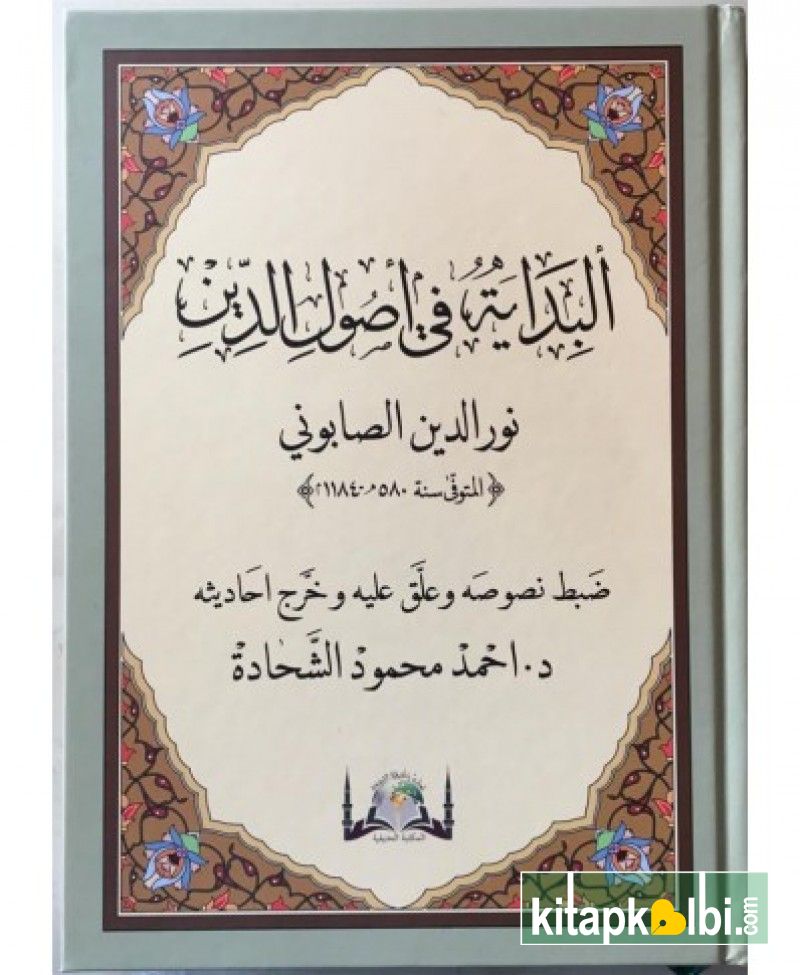 ألبِدَايَةُ فِي أصُولِ الدِّينِ
نور الدين الصابوني
﴿المتوفّٰى سنة ٥٨٠ﻫ-١١٨٤م﴾
ضَبط نصوصَه وعلَّق عليه وخَرَّج احاديثه
د. احمدْ محمودْ الشَّحادةْ
المكتبة الحنيفية
kitapkalbi.com